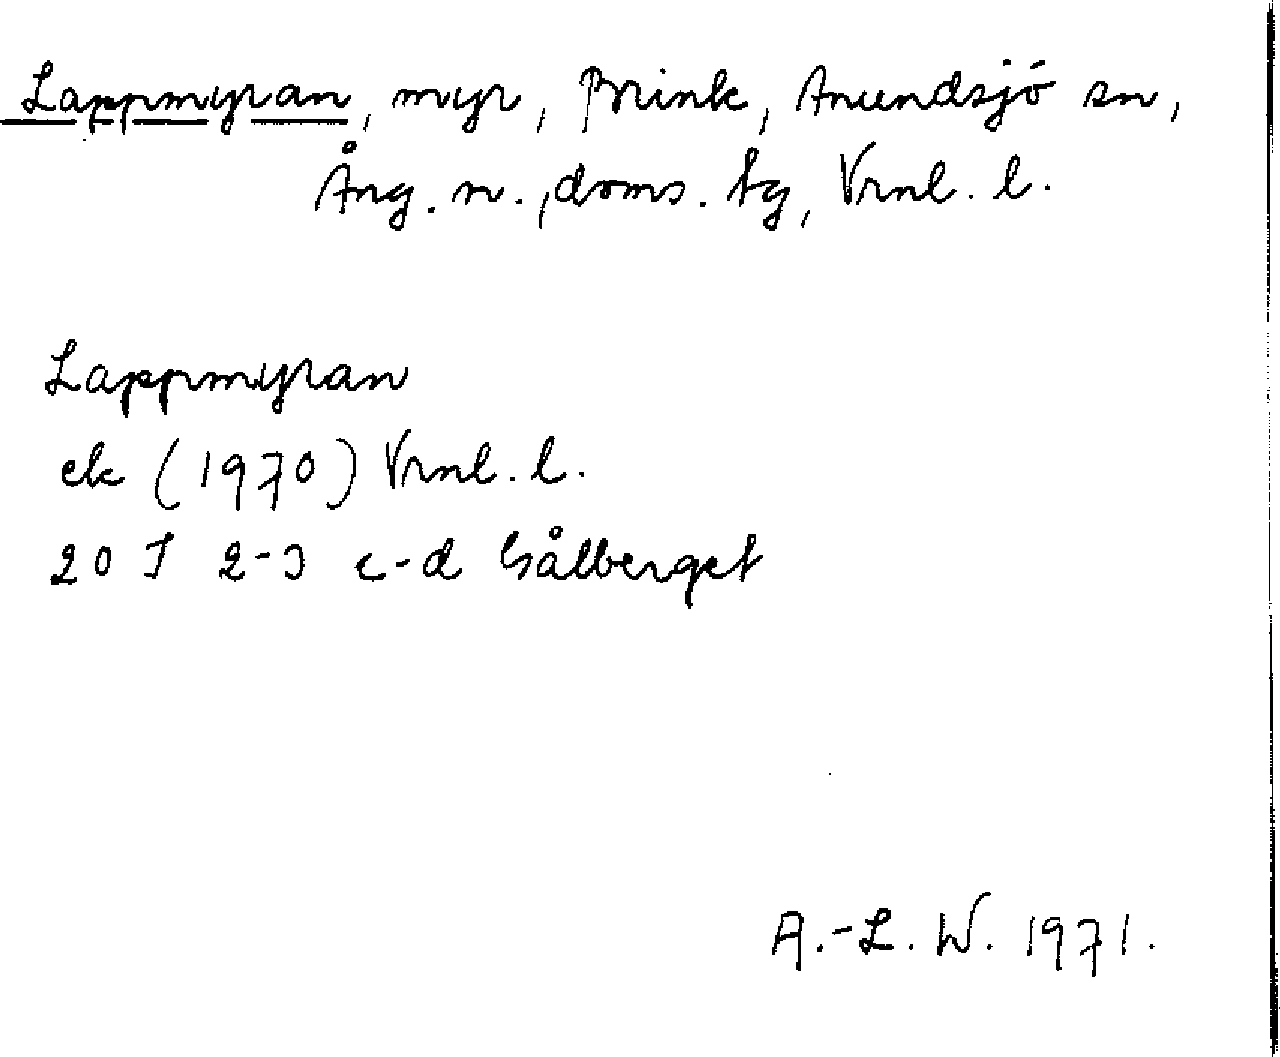 Lappmyran, myr, Brink, Anundsjö sn,
Ång. n., doms. tg, Vrnl. l.
Lappmyran
ek (1970) Vrnl. l.
20 J 2-3 c-d Gålberget
A.-L. W. 1971.